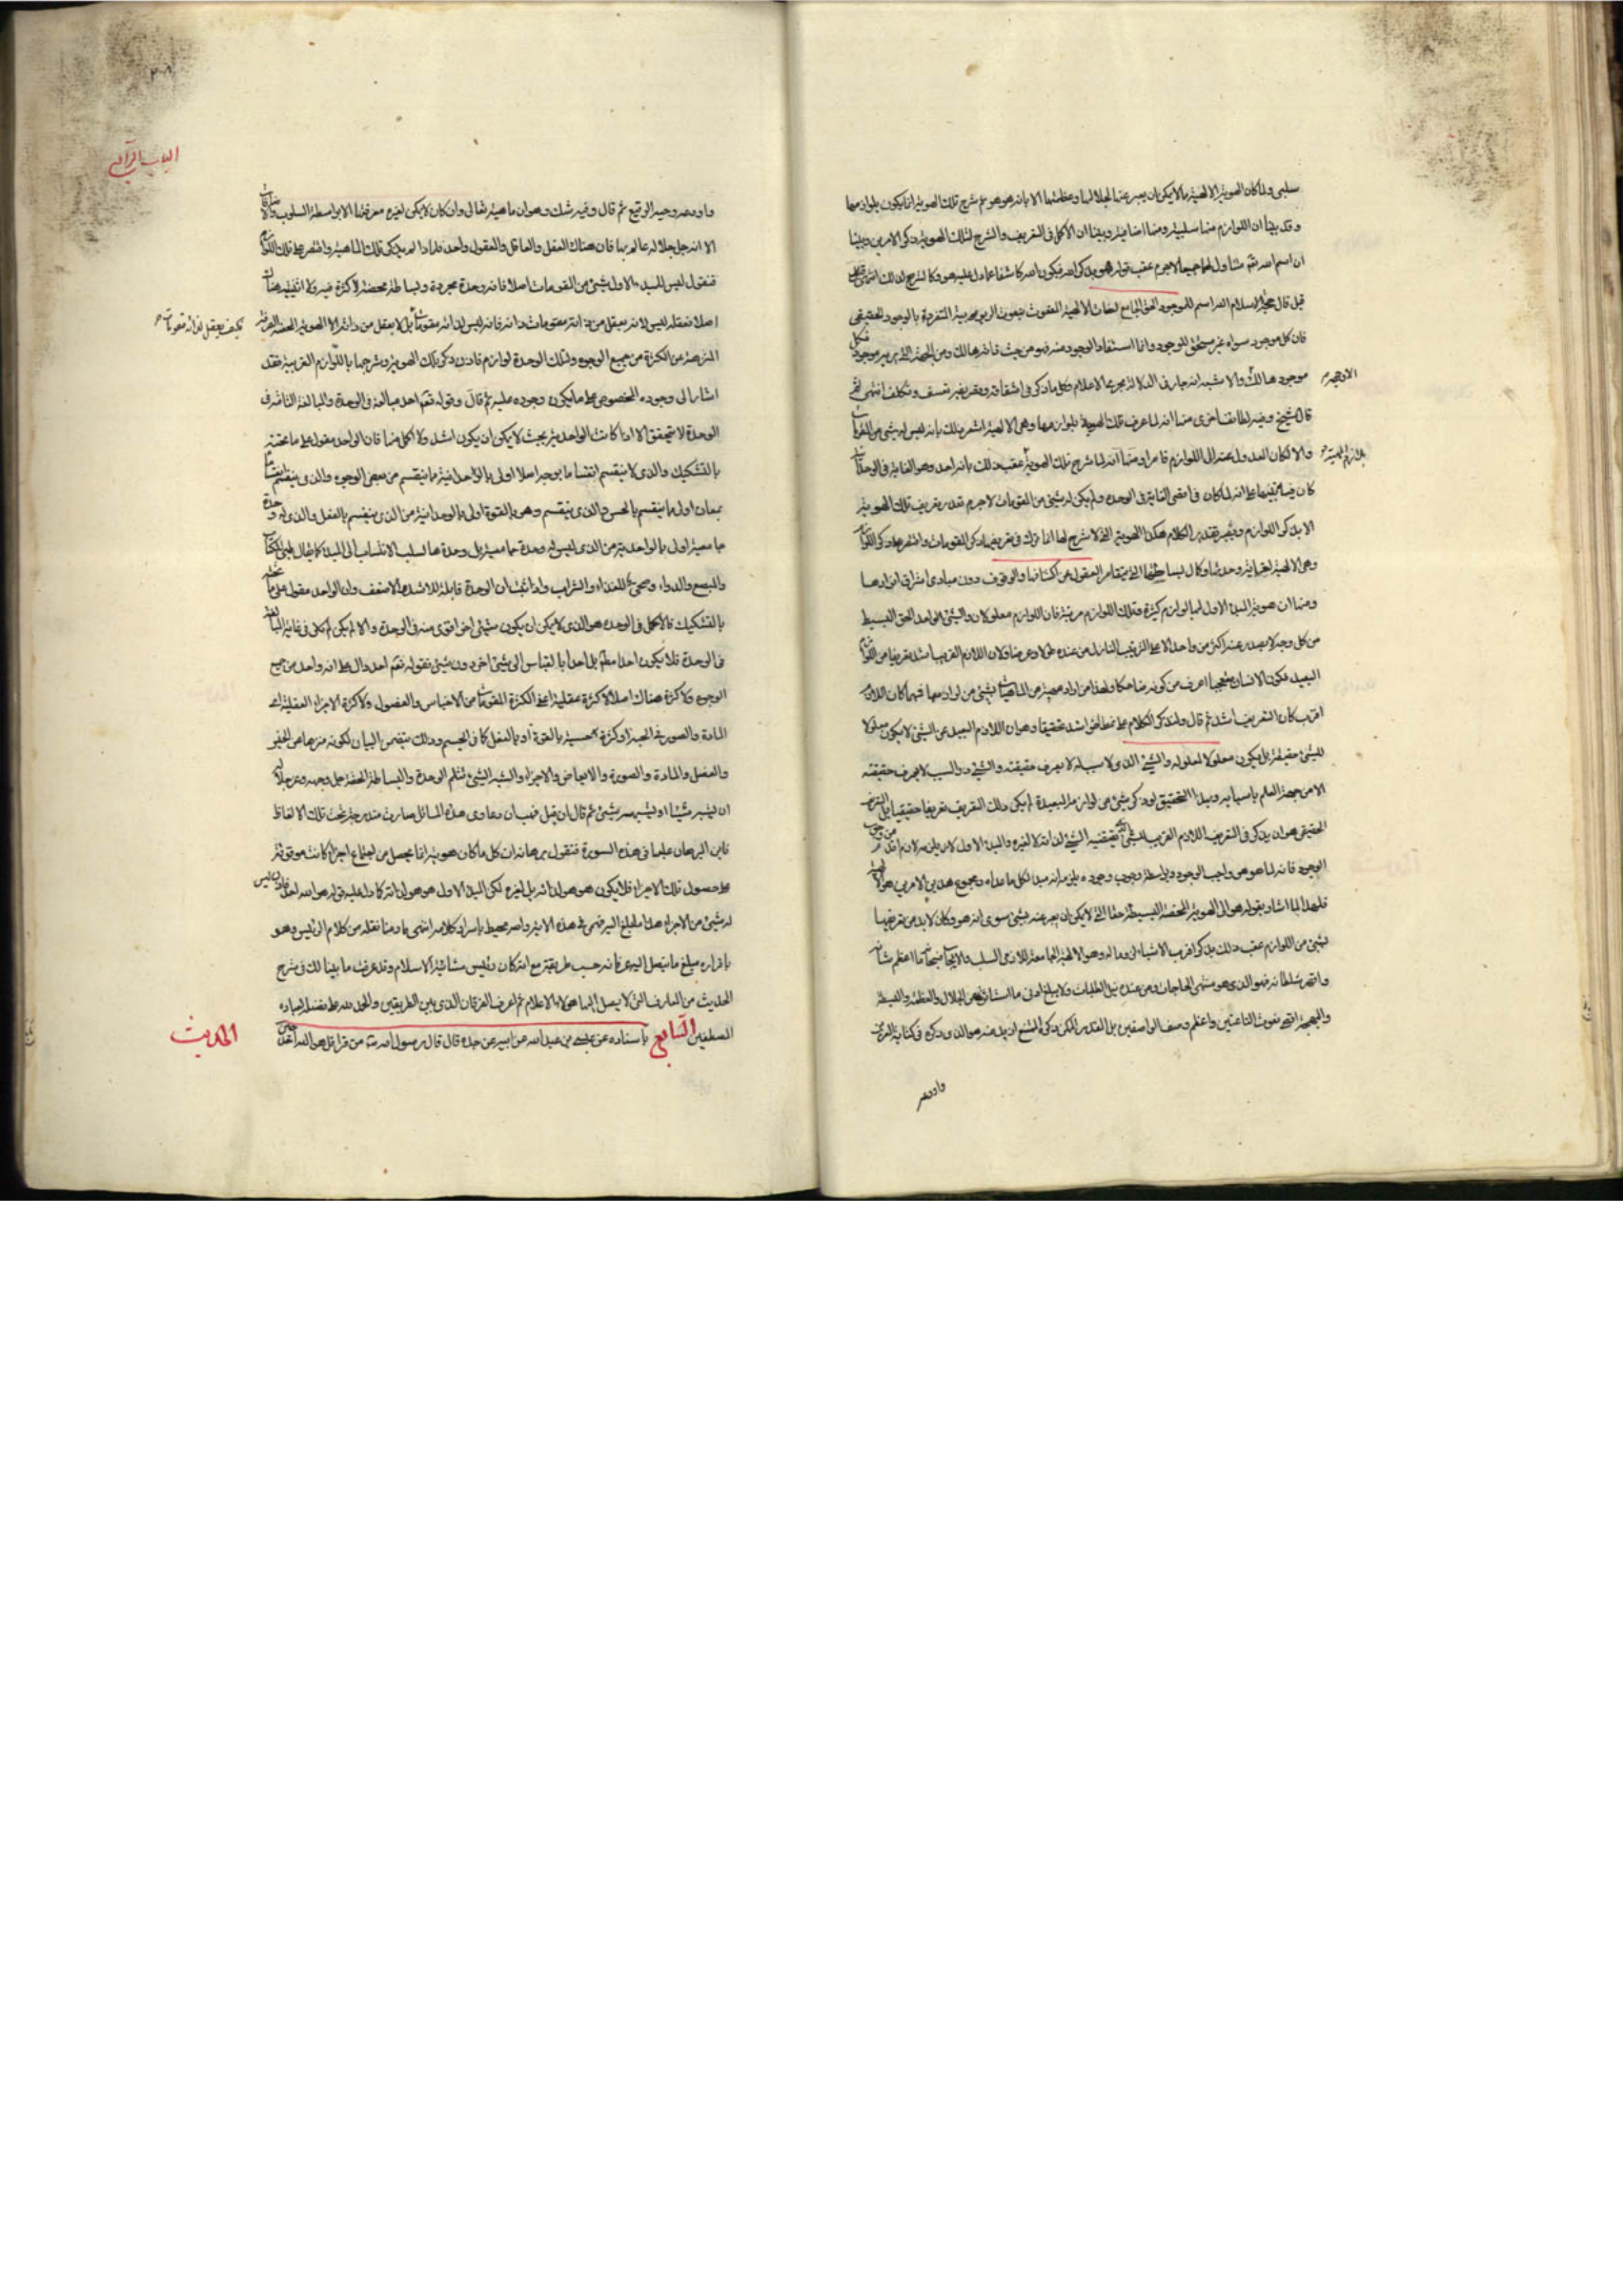 سلبى ولما كان الهوية الالهية مما لا يمكن ان يعبر عنها لجلالها وعظمتها الا بانه هو هو ثم شرح تلك الهوية انما يكون بلوازمها
وقد بينا ان اللوازم منها سلبية ومنها اضافية وبينا ان الاكمل فى التعريف والشرح لتلك الهوية ذكر الامرين وبينا
ان اسم الله تع متناول لهما جميعا لاجرم عقب قوله هو بذكر الله فيكون الله كاشفا عما دل عليه هو وكالشرح لذلك انتهى
قيل قال حجة الاسلام الله اسم للموجود الحق الجامع لصفات الالهية المنعوت بنعوت الربوبية المتفرد بالوجود الحقيقى
فان كل موجود سواه غير مستحق للوجود وانما استفاد الوجود منه فهو من حيث ذاته هالك ومن الجهة التى يربه موجود فكل
موجود هالك والاشبه انه جار فى الدلالة مجرى الاعلام وكل ما ذكر فى اشتقاقه وتعريفه تعسف وتكلف انتهى ثم
الا وجهه
قال الشيخ وفيه لطائف اخرى منها انه لما عرف تلك الهوية بلوازمها وهى الالهية اشعر ذلك بانه ليس له شئ من المقومات
والا لكان العدول عنه الى اللوازم قاصرا ومنها انه لما شرح تلك الهوية عقب ذلك بانه احد وهو الغاية فى الوحدانية
بلازم الهية
كان فيه تنبيها على انه لما كان فى اقصى الغاية فى الوحدة ولم يكن له شئ من المقومات لاجرم تعذر تعريف تلك الهوية
الا بذكر اللوازم ويصير تقدير الكلام هكذا الهوية التى لا شرح لها انما ترك فى تعريفها ذكر المقومات واقتصر على ذكر اللوازم
وهى الالهية لغاية وحدتها وكمال بساطتها التى يتقاصر العقول عن اكتناهها والوقوف دون مبادى اشراق انوارها
ومنها ان هوية المبدا الاول لها لوازم كثيرة وتلك اللوازم مرتبة فان اللوازم معلولات والشئ الواحد الحق البسيط
من كل وجه لا يصدر عنه اكثر من واحد الا على الترتيب النازل من عنده طولا وعرضا ولان اللازم القريب اشد تعريفا من اللوازم
البعيد فكون الانسان متعجبا اعرف من كونه ضاحكا ولهذا من اراد تعريف ماهية من الماهيات بشئ من لوازمها فمهما كان اللازم
اقرب كان التعريف اشد ثم قال ولنذكر الكلام على نمط اخر اشد تحقيقا وهو ان اللازم البعيد عن الشئ لا يكون معلولا
للشئ حقيقة بل يكون معلولا لمعلوله والشئ الذى له سبب لا يعرف حقيقته والشئ ذو السبب لا يعرف حقيقته
الا من جهة العلم باسبابه وبهذا التحقيق لو ذكر شئ من لوازمه البعيدة لم يكن ذلك التعريف تعريفا حقيقيا بل التعريف
الحقيقى هو ان يذكر فى التعريف اللازم القريب للشئ الذى يقتضيه الشئ لذاته لا لغيره والمبدا الاول لا يلزمه لازم اقدم من وجوب
الوجود فانه لما هو هو واجب الوجود وبواسطة وجوب وجوده يلزمه انه مبدا لكل ما عداه ومجموع هذين الامرين هو الالهية
فلهذا لما اشار بقوله هو الى الهوية المحضة البسيطة حقا التى لا يمكن ان يعبر عنه بشئ سوى انه هو وكان لا بد من تعريفها
بشئ من اللوازم عقب ذلك بذكر اقرب الاشياء لزوما له وهو الالهية الجامعة للازمى السلب والايجاب فسبحانه ما اعظم شانه
واقهر سلطانه فهو الذى هو منتهى الحاجات ومن عنده نيل الطلبات ولا يبلغ ادنى ما استاثر به من الجلال والعظمة والغبطة
والبهجة اقصى نعوت الناعتين واعظم وصف الواصفين بل القدر الممكن ذكره الممتنع ازيد منه هو الذى ذكره فى كتابه العزيز
واودعه
الباب الرابع
واودعه وحيه الرفيع ثم قال وفيه شك وهو ان ماهيته تعالى وان كان لا يمكن لغيره معرفتها الا بواسطة السلوب والاضافات
الا انه جل جلاله عالم بها فان هناك العقل والعاقل والمعقول واحد فلماذا لم يذكر تلك الماهية واقتصر على تلك اللوازم
فنقول ليس للمبدء الاول شئ من المقومات اصلا فانه وحدة مجردة وبساطة محضة لا كثرة فيه ولا اثنينية هناك
اصلا فعقله ليس لانه يعقل من ذاته مقومات ذاته فانه ليس لذاته مقومات بل لا يعقل من ذاته الا الهوية المحضة الصرفة
فكيف يعقل لذاته مقومات
المنزهة عن الكثرة من جميع الوجوه ولتلك الوحدة لوازم فاذن ذكر تلك الهوية وشرحها باللوازم القريبة فقد
اشار الى وجوده المخصوص على ما يكون وجوده عليه ثم قال وقوله تع احد مبالغة فى الوحدة والمبالغة التامة فى
الوحدة لا تتحقق الا اذا كانت الواحدية بحيث لا يمكن ان يكون اشد ولا اكمل منها فان الواحد مقول على ما تحته
بالتشكيك والذى لا ينقسم انقساما بوجه اصلا اولى بالواحدانية مما ينقسم من بعض الوجوه والذى ينقسم انقساما
بمعان اولى مما ينقسم بالحس والذى ينقسم وهو بالقوة اولى بالوحدانية من الذى ينقسم بالفعل والذى له وحدة
جامعية اولى بالواحدية من الذى ليس له وحدة جامعية بل وحدة ها لسلب الانتساب الى المبدا كما يقال طبى للكتاب
والمبضع والدواء وصحى للغذاء والشراب واذا ثبت ان الوحدة قابلة للاشد والاضعف وان الواحد مقول على ما تحته
بالتشكيك فالاكمل فى الوحدة هو الذى لا يمكن ان يكون شئ اخر اقوى منه فى الوحدة والا لم يكن فى غاية المبالغة
فى الوحدة فلا يكون احدا مطلقا بل احدا بالقياس الى شئ اخر دون شئ فقوله تع احد دال على انه واحد من جميع
الوجوه ولا كثرة هناك اصلا لا كثرة عقلية اعنى الكثرة المقومات من الاجناس والفصول ولا كثرة الاجزاء العقلية اعنى
المادة والصورة فى الجسم او كثرة حسية بالقوة او بالفعل كما فى الجسم وذلك يتضمن البيان لكونه منزها عن الجنس
والفصل والمادة والصورة والابعاض والاجزاء والشبه الشئ تثلم الوحدة والبساطة الحقة جل وجهه وعز جلاله
ان يشبه شيئا او يشبهه شئ ثم قال فان قيل فهب ان دعاوى هذه المسائل صارت مندرجة تحت تلك الالفاظ
فاين البرهان عليها فى هذه السورة فنقول برهانه ان كل ما كان هويته انما يحصل من اجتماع اجزاء كانت موقوفة
على حصول تلك الاجزاء فلا يكون هو هو لذاته بل لغيره لكن المبدا الاول هو هو لذاته كما دل عليه قوله هو الله احد فاذن ليس
له شئ من الاجزاء هذا ما بلغ اليه فهمى فى هذه الاية والله محيط باسرار كلامه انتهى ما اردنا نقله من كلام الرئيس وهو
باقراره مبلغ ما يصل اليه وكانه حسب طريقته مع انه كان رئيس مشائية الاسلام وقد عرفت ما بينا لك فى شرح
الحديث من المعارف التى لا يصل اليها هؤلاء الاعلام ثم اعرف الفرقان الذى بين الطريقين والحمد لله على فضله لعباده
المصطفين الحديث السابع باسناده عن عيسى بن عبد الله عن ابيه عن جده قال قال رسول الله ص من قرا قل هو الله احد حين